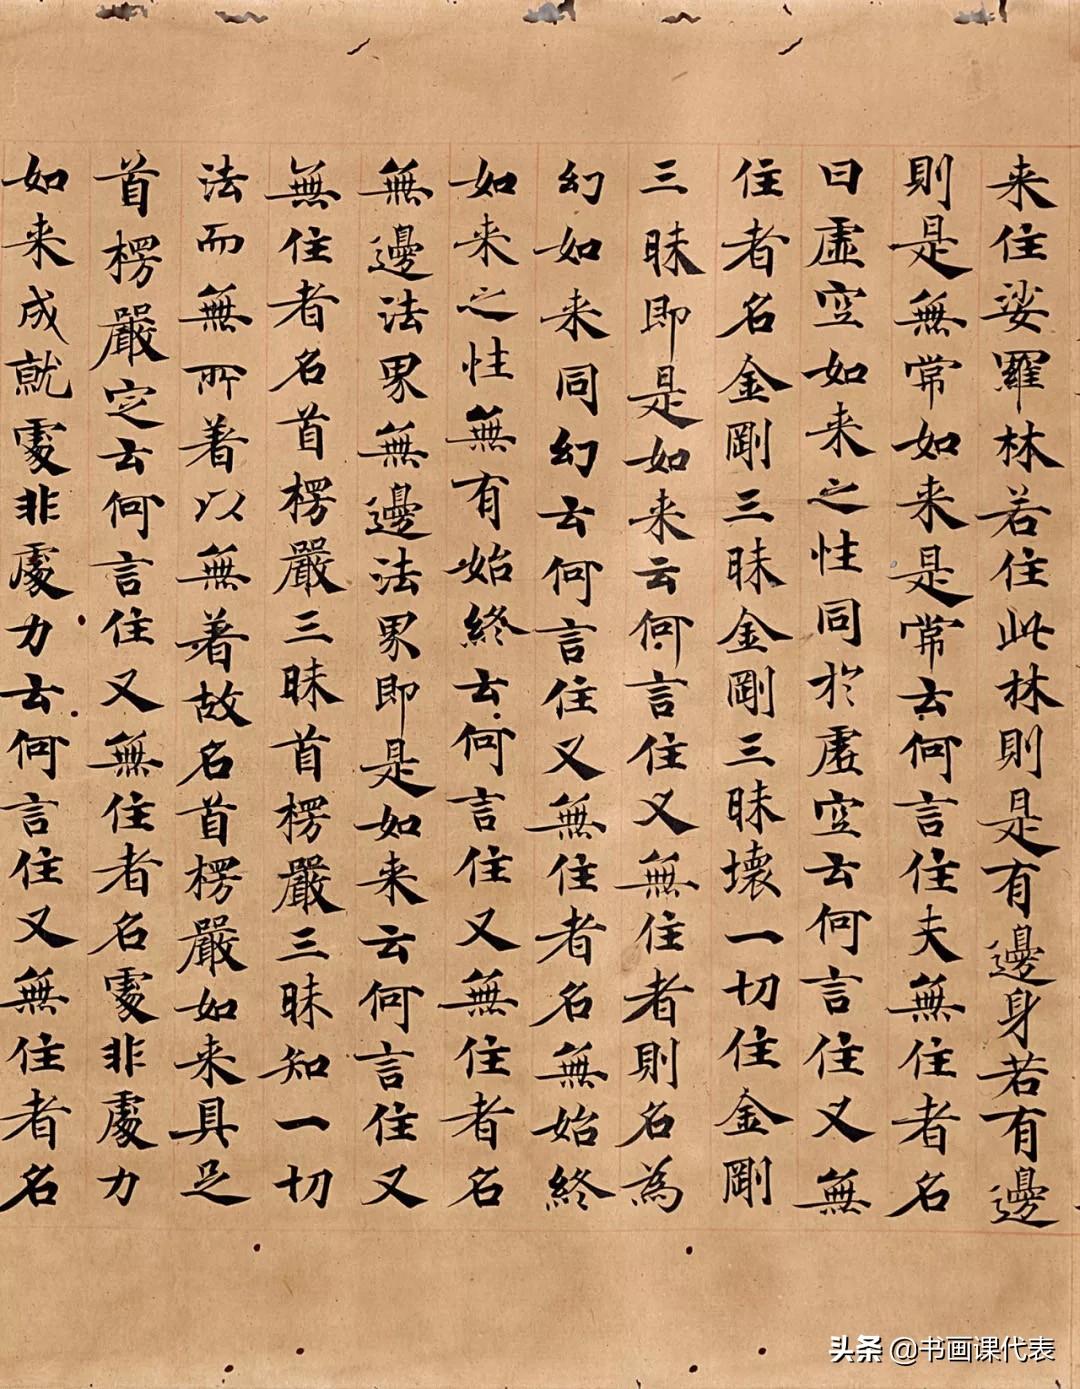 来住娑羅林若住此林則是有邊身若有邊
則是無常如来是常云何言住夫無住者名
曰虛空如来之性同於虛空云何言住又無
住者名金剛三昧金剛三昧壞一切住金剛
三昧即是如来云何言住又無住者則名為
幻如来同幻云何言住又無住者名無始終
如来之性無有始終云何言住又無住者名
無邊法界無邊法界即是如来云何言住又
無住者名首楞嚴三昧首楞嚴三昧知一切
法而無所著以無著故名首楞嚴如来具足
首楞嚴定云何言住又無住者名處非處力
如来成就處非處力云何言住又無住者名
头条 @书画课代表